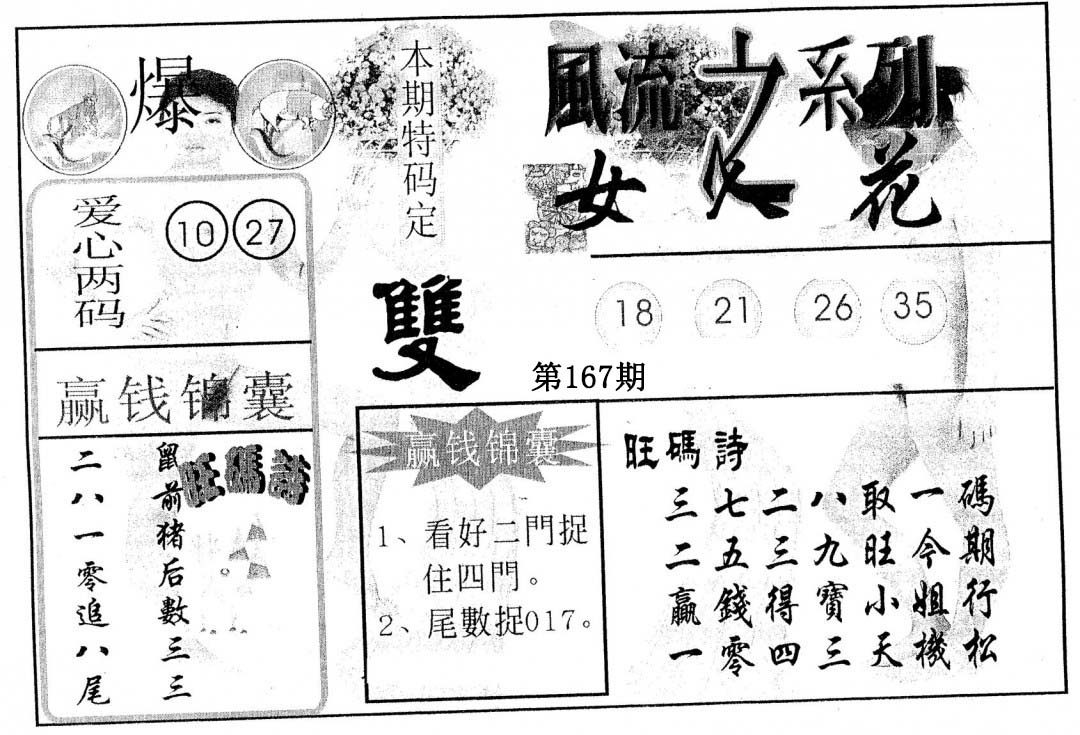 爆
爱心两码
10 27
赢钱锦囊
旺碼詩
鼠前猪后數三三
二八一零追八尾
本期特码定
雙
風流之系列
女人花
18 21 26 35
第167期
赢钱锦囊
1、看好二門捉
住四門。
2、尾數捉017。
旺碼詩
三七二八取一碼
二五三九旺今期
贏錢得寶小姐行
一零四三天機松